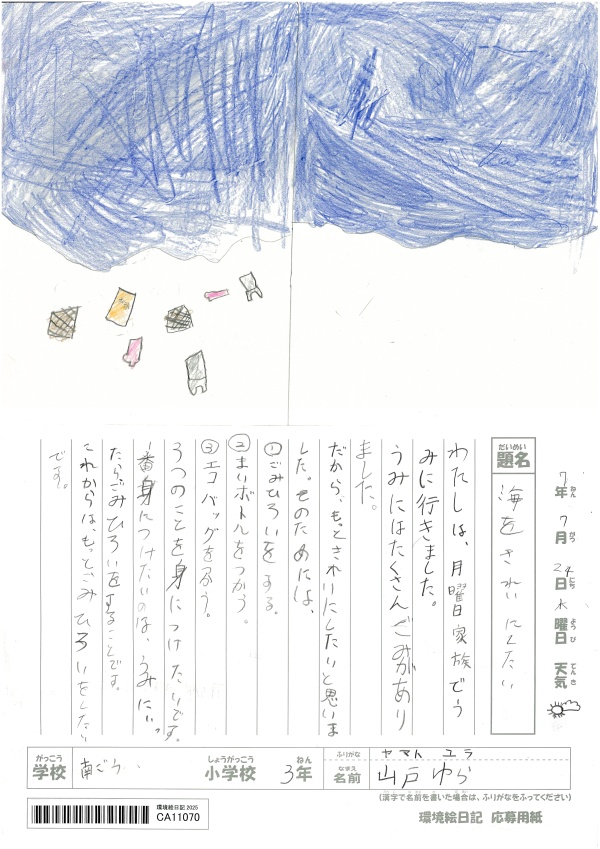 7年7月24日水曜日 天気
ねん
がつ
にち
ようび
てんき
だいめい
題名
海をきれいにしたい
わたしは、月曜日家族でう
みに行きました。
うみにはたくさんごみがあり
ました。
だから、もっときれいにしたいと思いま
した。そのためには、
①ごみひろいをする。
②まいボトルをつかう。
③エコバッグをつかう。
3つのことを身につけたいです。
一番身につけたいのは、うみにいっ
たらごみひろいをすることです。
これからは、もっとごみひろいをしたい
です。
がっこう
学校
南ごう
しょうがっこう
小学校
3年
ねん
ふりがな
ヤマト ユラ
なまえ
名前
山戸ゆら
(漢字で名前を書いた場合は、ふりがなをふってください)
環境絵日記2025
CA11070
環境絵日記 応募用紙